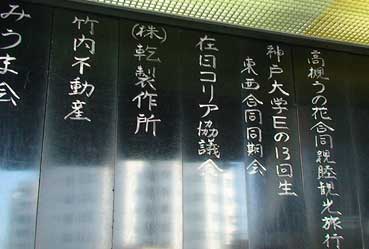 高槻うの花合同親睦観光旅行
神戸大学Eの13回生
東西合同同期会
在日コリア協議会
(株)乾製作所
竹内不動産
みうま会